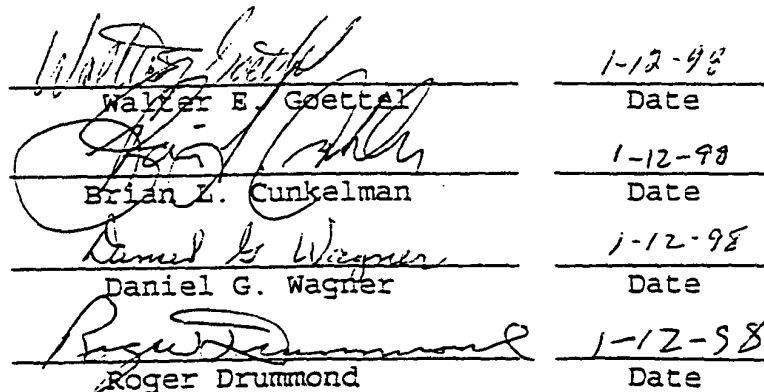 Walter Goettel 1-12-98
Walter E. Goettel Date
Brian Cunkelman 1-12-98
Brian L. Cunkelman Date
Daniel G Wagner 1-12-98
Daniel G. Wagner Date
Roger Drummond 1-12-98
Roger Drummond Date